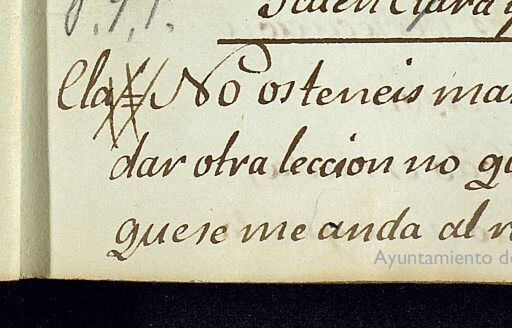 Salen Clara y
Cla= No os teneis mas
dar otra leccion no qu
que se me anda al r
Ayuntamiento de